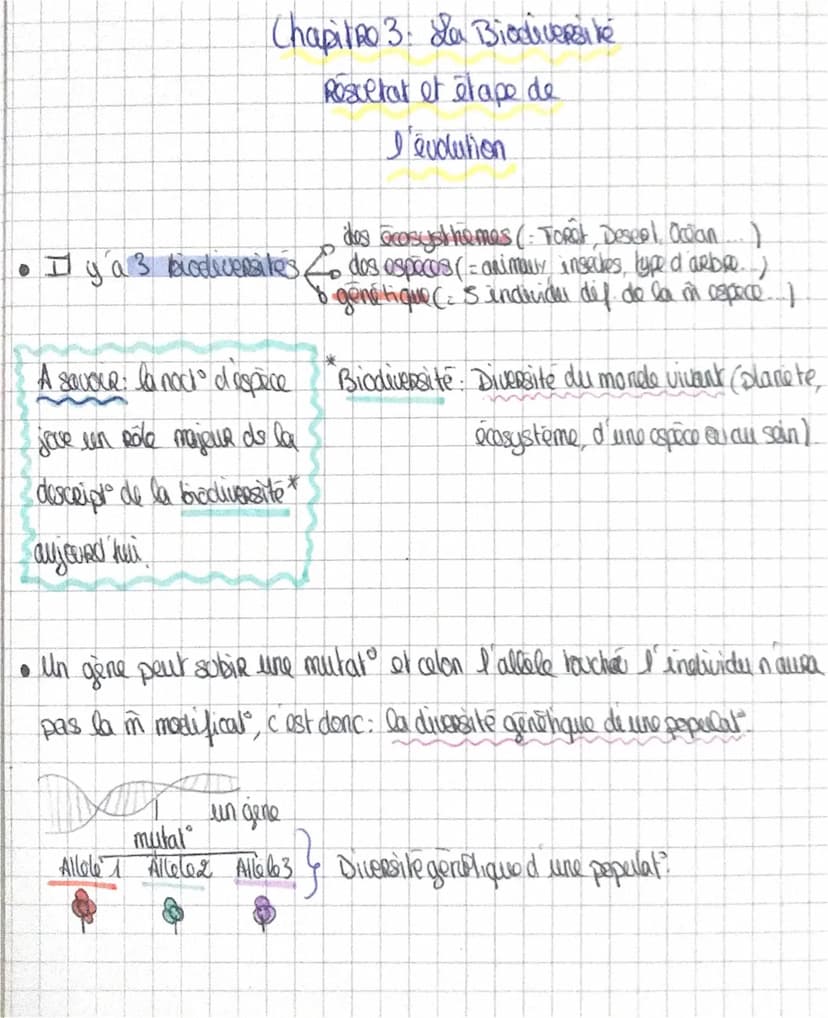 Chapitre 3: La Biodiversité
Résultat et étape de
l'évolution
des écosysthemes (= Forêt, Desert, Océan ... )
• Il y'a 3 biodiversités
des espèces (= animaux, insectes, type d'arbre...)
génétique (= 5 individu dif. de la m̄ espece ...)
A savoir: la not° d'espèce
joue un rôle majeur ds la
descript° de la biodiversité*
aujourd'hui.
*Biodiversité: Diversité du monde vivant (planète,
écosystème, d'une espèce ou au sein)
• Un gène peut subir une mutat° et celon l'allèle touché l'individu n'aura
pas la m̄ modificat°, c'est donc: la diversité génétique d'une populat°.
un gène
mutat°
Allele 1 Allele 2 Allele 3
Diversité génétique d'une populat°.